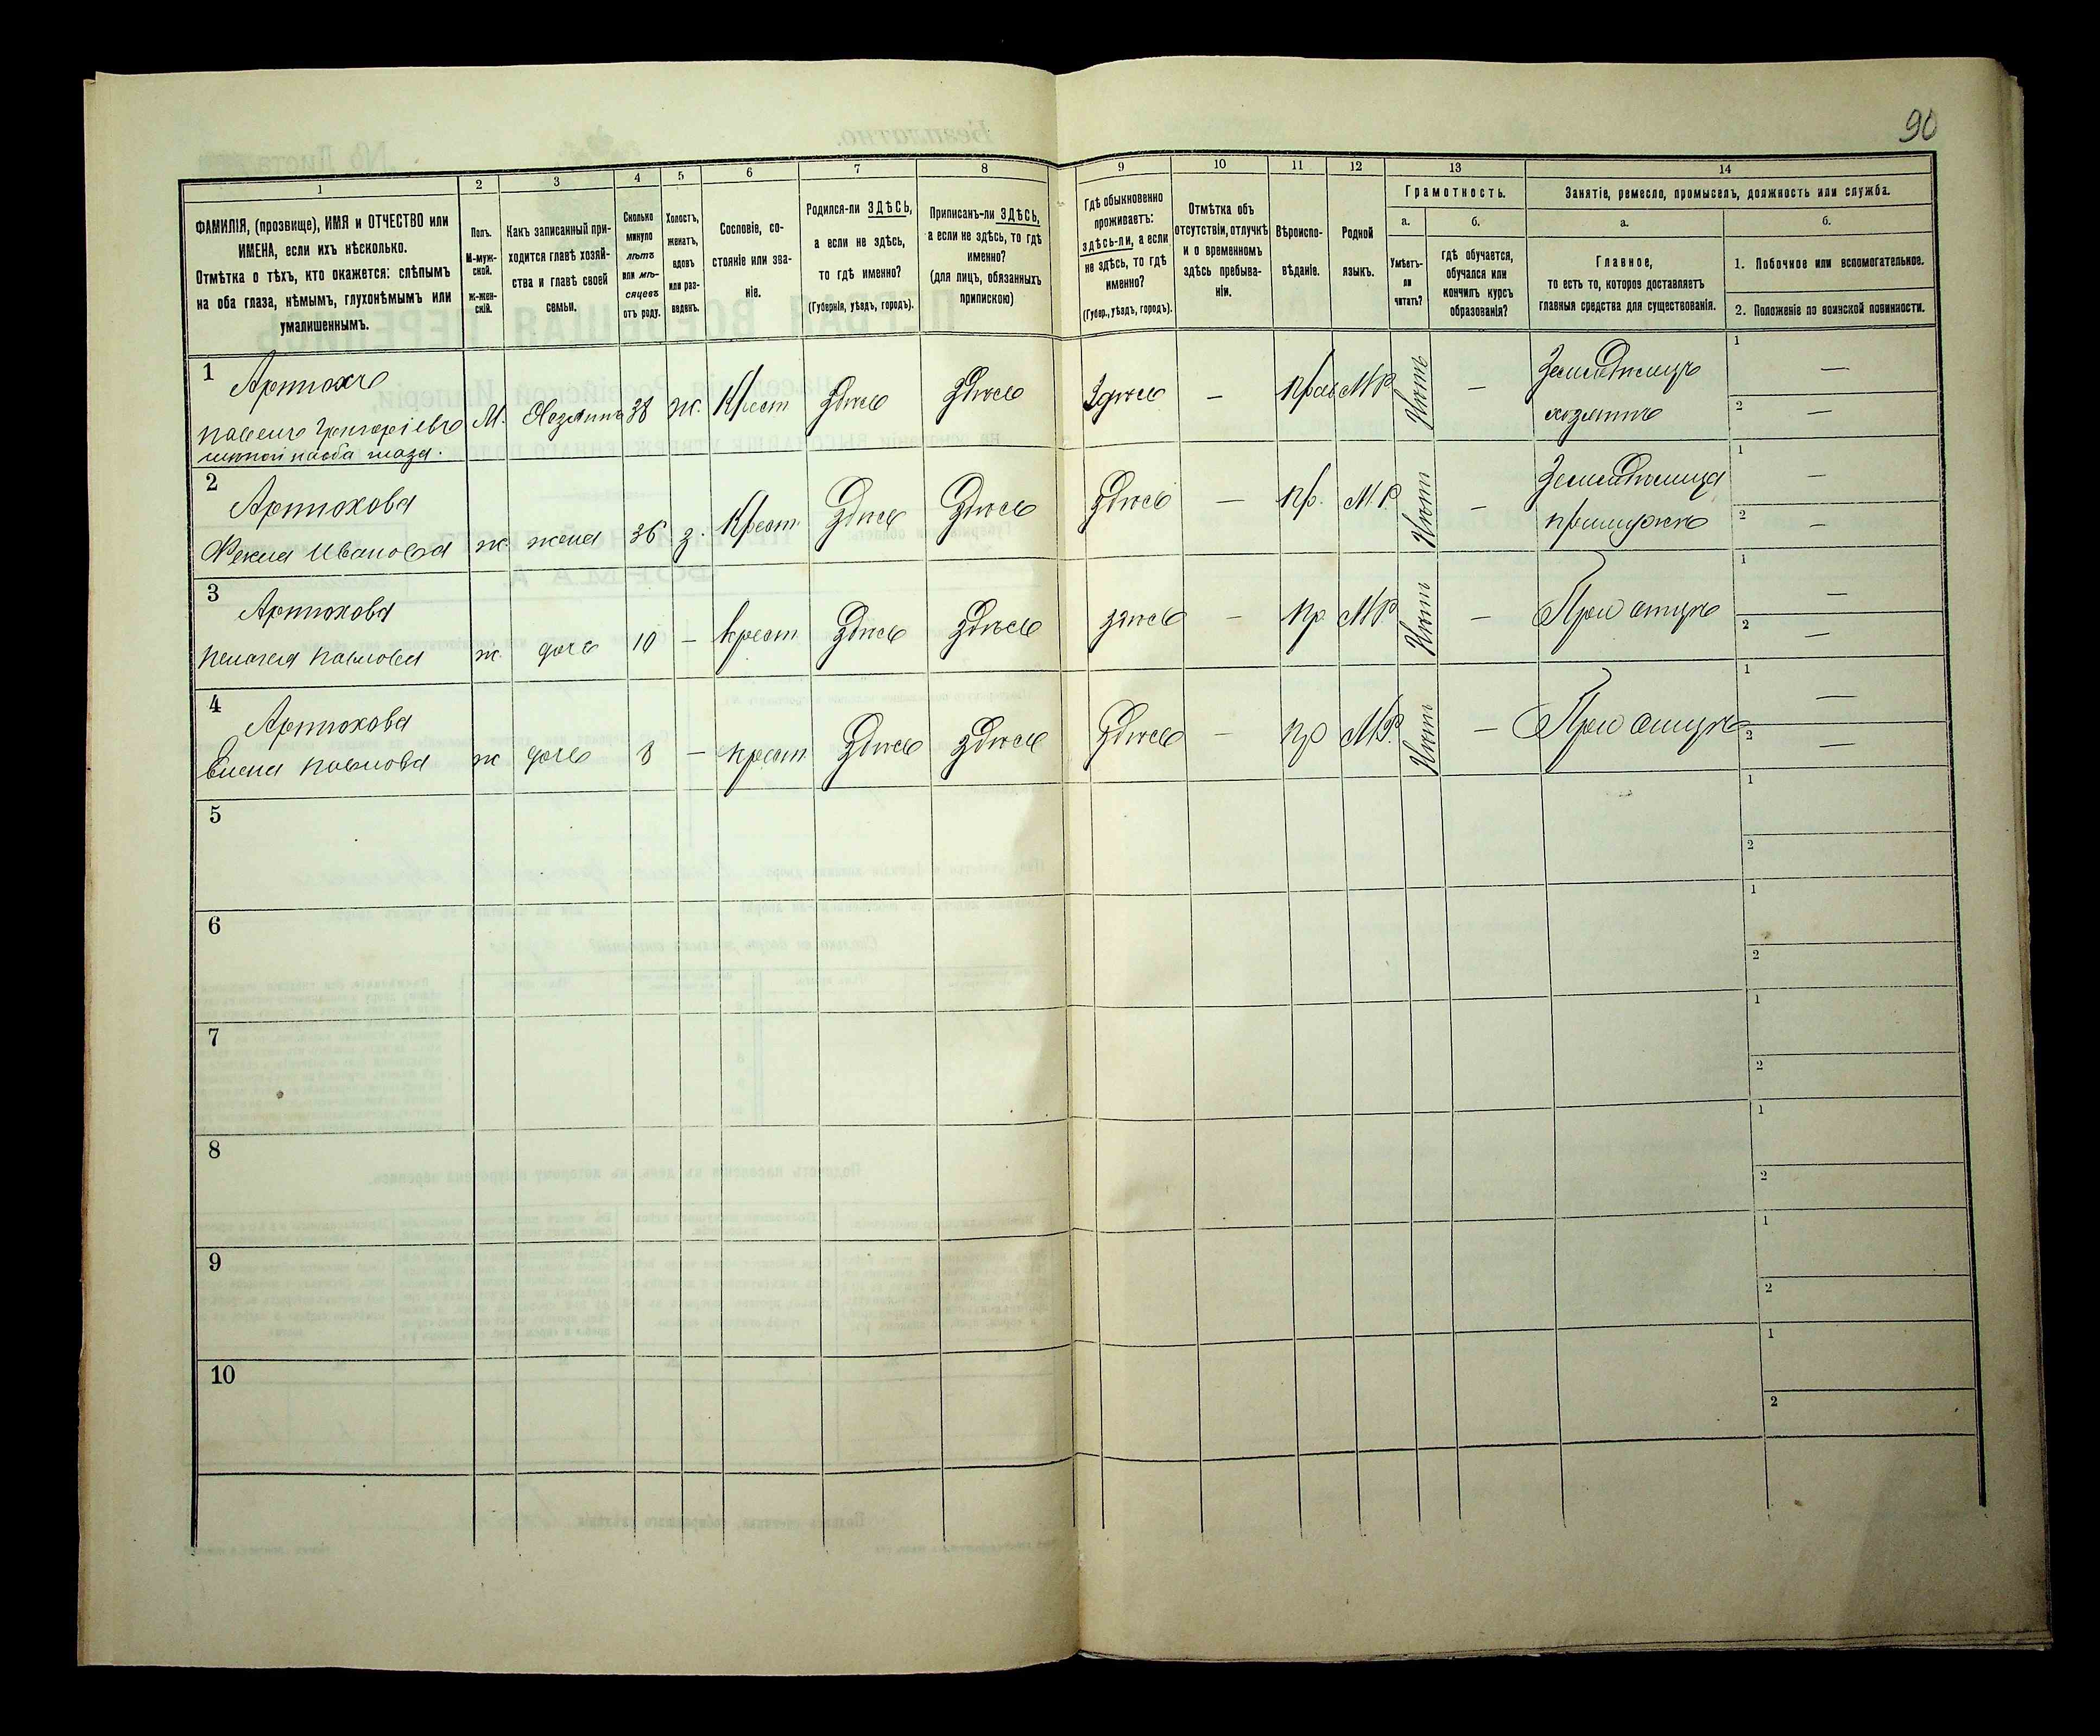 90
1
2
3
4
5
6
7
8
9
10
11
12
13
14
ФАМИЛІЯ, (прозвище), ИМЯ и ОТЧЕСТВО или
ИМЕНА, если ихъ нѣсколько.
Отмѣтка о тѣхъ, кто окажется: слѣпымъ
на оба глаза, нѣмымъ, глухонѣмымъ или
умалишеннымъ.
Полъ.
М-муж-
ской.
Ж-жен-
скій.
Какъ записанный при-
ходится главѣ хозяй-
ства и главѣ своей
семьи.
Сколько
минуло
лѣтъ
или мѣ-
сяцевъ
отъ роду.
Холостъ,
женатъ,
вдовъ
или раз-
веденъ.
Сословіе, со-
стояніе или зва-
ніе.
Родился-ли ЗДѢСЬ,
а если не здѣсь,
то гдѣ именно?
(Губернія, уѣздъ, городъ).
Приписанъ-ли ЗДѢСЬ,
а если не здѣсь, то гдѣ
именно?
(для лицъ, обязанныхъ
припискою)
Гдѣ обыкновенно
проживаетъ:
здѣсь-ли, а если
не здѣсь, то гдѣ
именно?
(Губер., уѣздъ, городъ).
Отмѣтка объ
отсутствіи, отлучкѣ
и о временномъ
здѣсь пребыва-
ніи.
Вѣроиспо-
вѣданіе.
Родной
языкъ.
Грамотность.
а.
б.
Умѣетъ-
ли
читать?
гдѣ обучается,
обучался или
кончилъ курсъ
образованія?
Занятіе, ремесло, промыселъ, должность или служба.
а.
б.
Главное,
то есть то, которое доставляетъ
главныя средства для существованія.
1. Побочное или вспомогательное.
2. Положеніе по воинской повинности.
1 Артюхъ
Павелъ Григоріевъ М. Хозяинъ 38 ж. Крест здѣсь здѣсь здѣсь — Прав М.Р. Нѣтъ — Земледѣлецъ 1 —
слѣпой на оба глаза.
хозяинъ 2 —
2 Артюхова
Фекла Иванова ж. жена 36 з. Крест здѣсь здѣсь здѣсь — Пр. М.Р. Нѣтъ — Земледѣлица 1 —
при мужѣ 2 —
3 Артюхова
Пелагея Павлова ж. дочь 10 — крест здѣсь здѣсь здѣсь — Пр М.Р. Нѣтъ — При отцѣ 1 —
2 —
4 Артюхова
Елена Павлова ж дочь 8 — крест здѣсь здѣсь здѣсь — Пр М.Р. Нѣтъ — При отцѣ 1 —
2 —
5 1
2
6 1
2
7 1
2
8 1
2
9 1
2
10 1
2